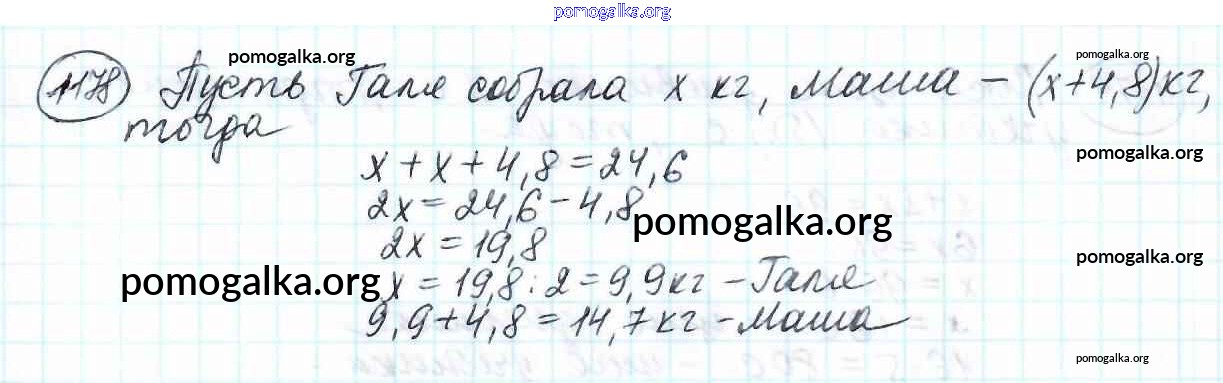 pomogalka.org
pomogalka.org
pomogalka.org
1178 Пусть Галя собрала x кг, Маша – (x+4,8)кг,
тогда
pomogalka.org
x + x + 4,8 = 24,6
2x = 24,6 - 4,8
pomogalka.org
2x = 19,8
pomogalka.org
pomogalka.org
x = 19,8 : 2 = 9,9 кг – Галя
9,9 + 4,8 = 14,7 кг – Маша
pomogalka.org